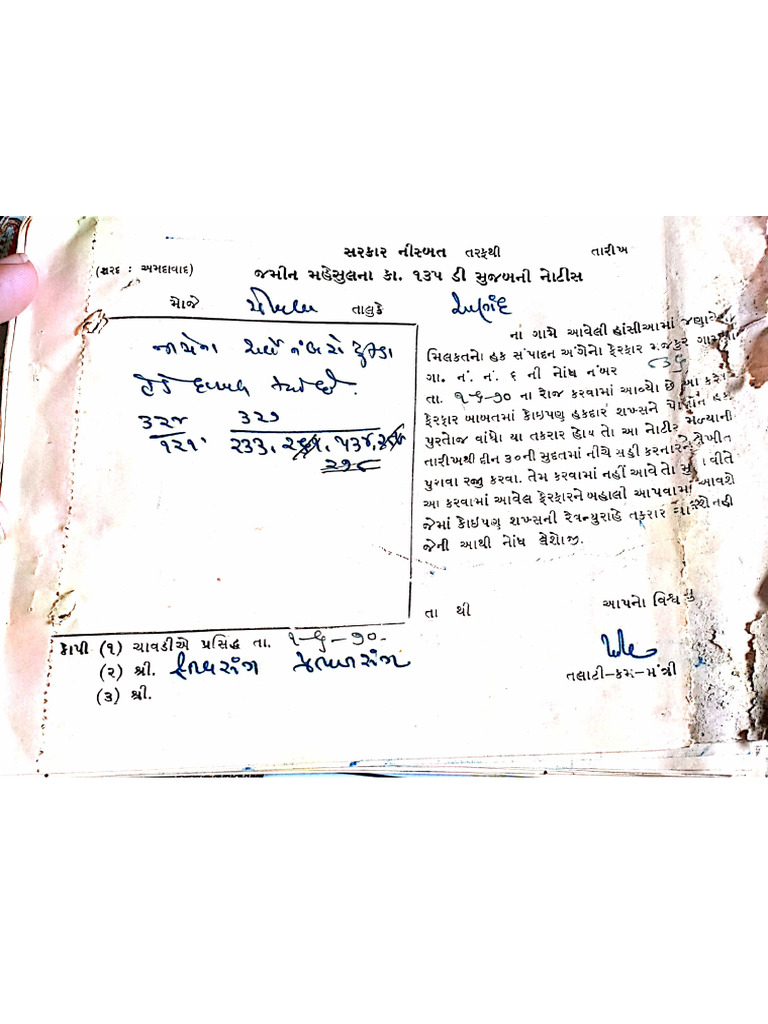 સરકાર નીસ્બત તરફથી તારીખ
(શરદ : અમદાવાદ) જમીન મહેસુલના કા. ૧૩૫ ડી મુજબની નોટીસ
મોજે તાલુકે
ના ગામે આવેલી હાંસીઆમાં જણાવેલ
મિલકતનો હક સંપાદન અંગેનો ફેરફાર મજકુર ગામના
ગા. નં. નં. ૬ ની નોંધ નંબર
તા. ૧-૬-૭૦ ના રોજ કરવામાં આવ્યો છે આ કરેલ
ફેરફાર બાબતમાં કોઇપણ હકદાર શખ્સને પોતાને હક
પુરતોજ વાંધો યા તકરાર હોય તો આ નોટીસ મળ્યાની
તારીખથી દીન ૩૦ની મુદતમાં નીચે સહી કરનારને લેખીત
પુરાવા રજી કરવા. તેમ કરવામાં નહીં આવે તો વીતે
આ કરવામાં આવેલ ફેરફારને બહાલી આપવામાં આવશે
જેમાં કોઇપણ શખ્સની રેવન્યુરાહે તકરાર નહી
જેની આથી નોંધ લેશોજી.
નીચેના સર્વે નંબરો ટુકડા
તરીકે દાખલ કર્યા છે.
૩૨૪ ૩૨૭
૧૨૧ ૨૩૩, ૫૩૪,
૨૭૮
તા થી આપનો વિશ્વાસુ
કોપી (૧) ચાવડીએ પ્રસિદ્ધ તા. ૧-૬-૭૦
(૨) શ્રી.
(૩) શ્રી.
તલાટી-કમ-મંત્રી